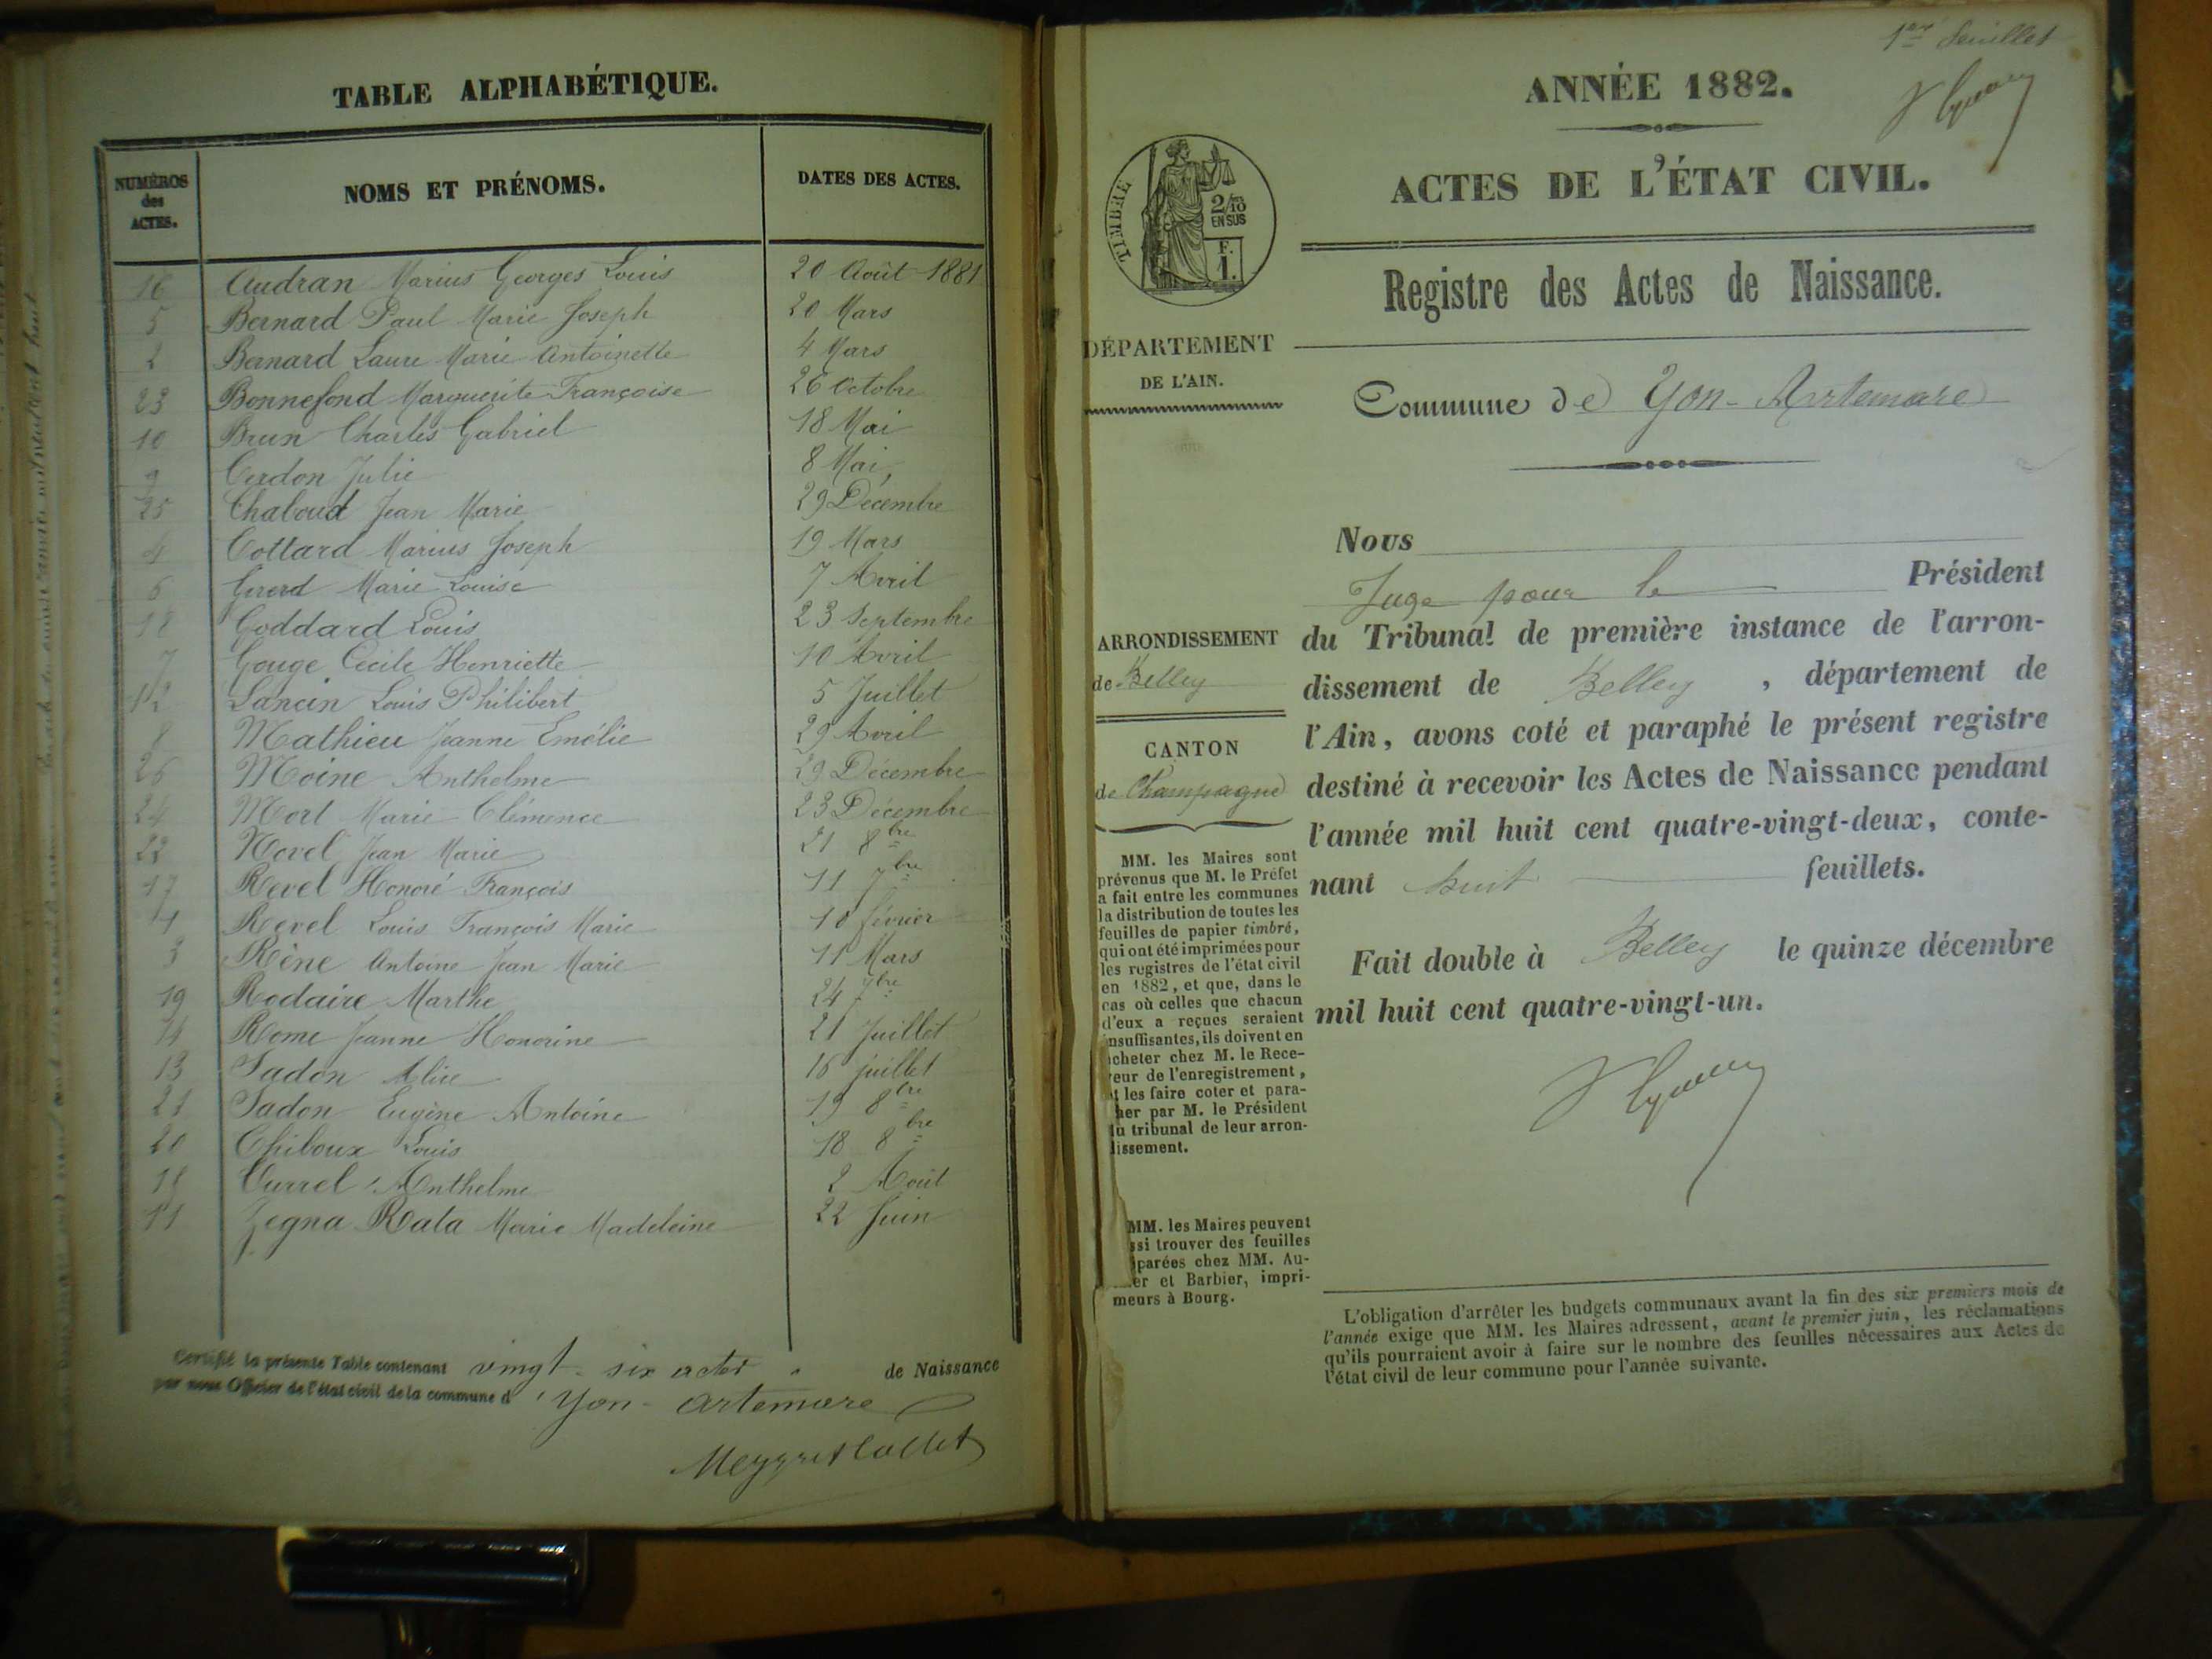 TABLE ALPHABÉTIQUE.
NUMÉROS des ACTES. NOMS ET PRÉNOMS. DATES DES ACTES.
16 Audran Marius Georges Louis 20 Août 1881
5 Bernard Paul Marie Joseph 20 Mars
2 Bernard Laure Marie Antoinette 4 Mars
23 Bonnefond Marguerite Françoise 26 Octobre
10 Brun Charles Gabriel 18 Mai
9 Cerdon Julie 8 Mai
25 Chaboud Jean Marie 29 Décembre
4 Cottard Marius Joseph 19 Mars
6 Girerd Marie Louise 7 Avril
18 Goddard Louis 23 Septembre
7 Gouge Cécile Henriette 10 Avril
12 Lancin Louis Philibert 5 Juillet
8 Mathieu Jeanne Emélie 29 Avril
26 Moine Anthelme 29 Décembre
24 Mort Marie Clémence 23 Décembre
22 Revel Jean Marie 21 8bre
17 Revel Honoré François 11 7bre
1 Revel Louis François Marie 10 février
3 Rène Antoine Jean Marie 11 Mars
19 Rodaire Marthe 24 7bre
14 Rome Jeanne Honorine 21 Juillet
13 Sadon Alice 16 juillet
21 Sadon Eugène Antoine 19 8bre
20 Chiboux Louis 18 8bre
Anthelme 2 Août
11 Zegna Rata Marie Madeleine 22 Juin
Certifié la présente Table contenant vingt-six actes de Naissance
par nous Officier de l'état civil de la commune d'Yon-Artemare
1er feuillet
ANNÉE 1882.
ACTES DE L'ÉTAT CIVIL.
TIMBRE
2/10
EN SUS
F.
1.
Registre des Actes de Naissance.
DÉPARTEMENT
DE L'AIN.
Commune de Yon-Artemare
Nous
Juge pour le Président
du Tribunal de première instance de l'arron-
dissement de Belley, département de
l'Ain, avons coté et paraphé le présent registre
destiné à recevoir les Actes de Naissance pendant
l'année mil huit cent quatre-vingt-deux, conte-
nant huit feuillets.
Fait double à Belley le quinze décembre
mil huit cent quatre-vingt-un.
ARRONDISSEMENT
de Belley
CANTON
de Champagne
MM. les Maires sont
prévenus que M. le Préfet
a fait entre les communes
la distribution de toutes les
feuilles de papier timbré,
qui ont été imprimées pour
les registres de l'état civil
en 1882, et que, dans le
cas où celles que chacun
d'eux a reçues seraient
insuffisantes, ils doivent en
acheter chez M. le Rece-
veur de l'enregistrement,
et les faire coter et para-
pher par M. le Président
du tribunal de leur arron-
dissement.
MM. les Maires peuvent
ssi trouver des feuilles
parées chez MM. Au-
er et Barbier, impri-
meurs à Bourg.
L'obligation d'arrêter les budgets communaux avant la fin des six premiers mois de
l'année exige que MM. les Maires adressent, avant le premier juin, les réclamations
qu'ils pourraient avoir à faire sur le nombre des feuilles nécessaires aux Actes de
l'état civil de leur commune pour l'année suivante.